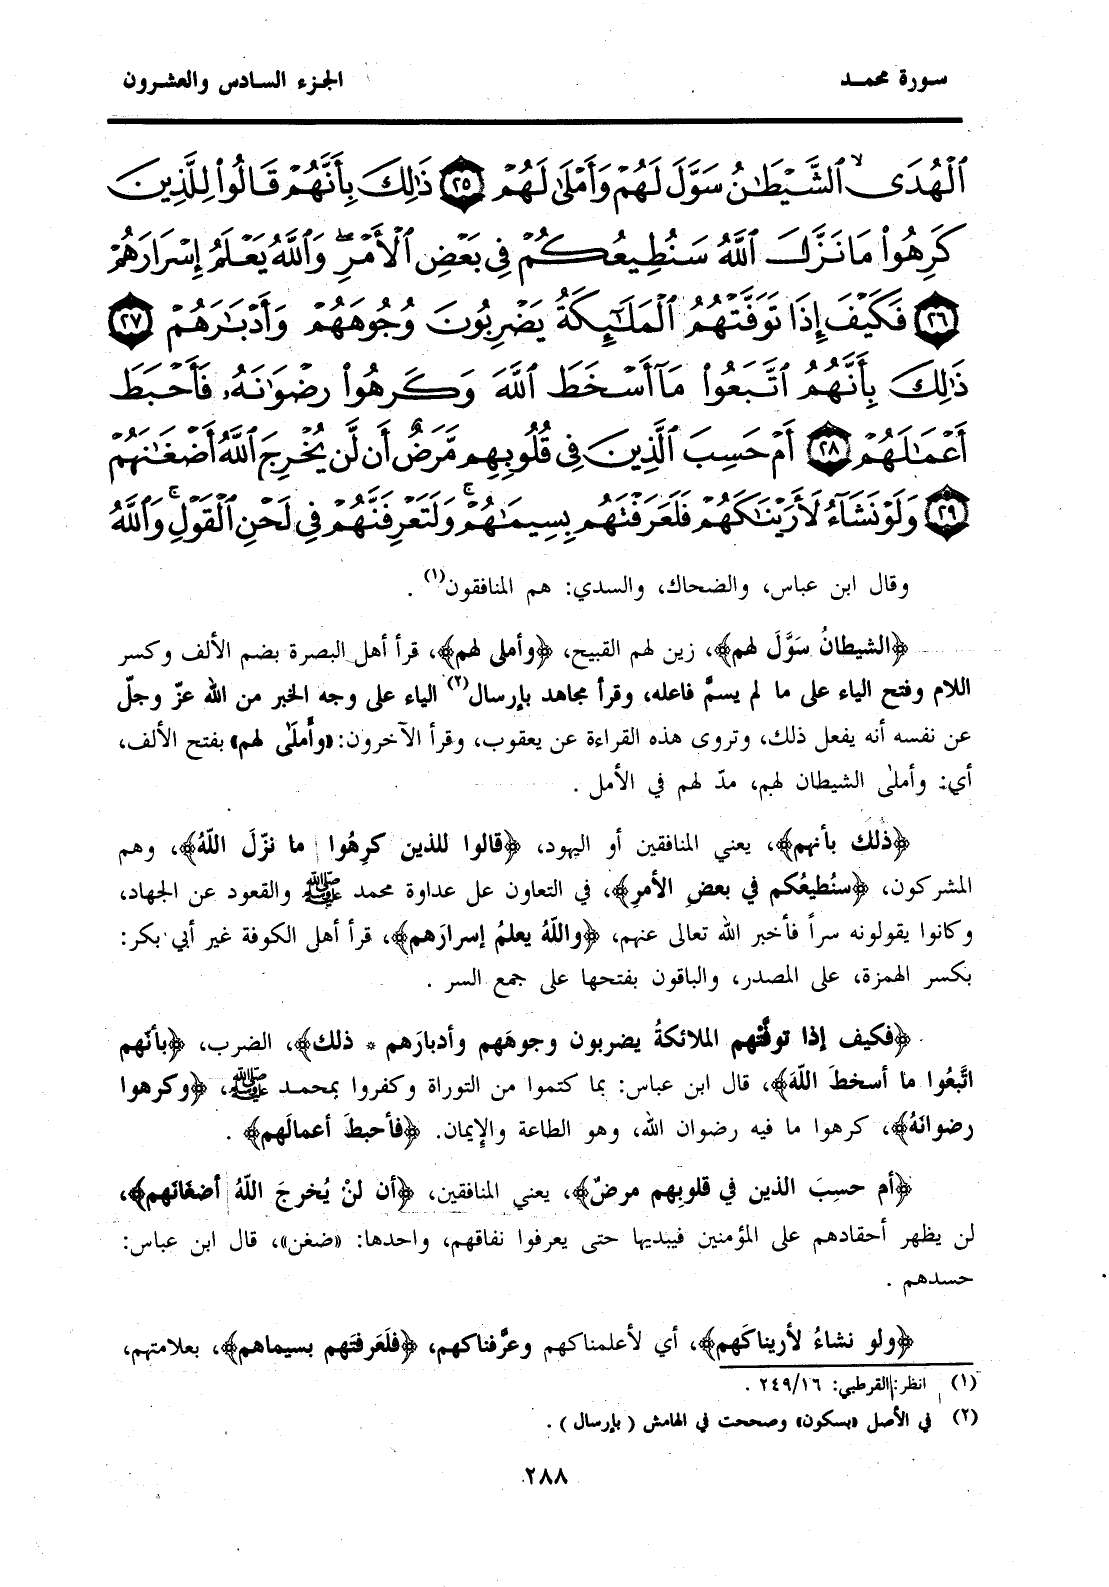 سورة محمد
الجزء السادس والعشرون
ٱلْهُدَىۙ ٱلشَّيْطَٰنُ سَوَّلَ لَهُمْ وَأَمْلَىٰ لَهُمْ ٢٥ ذَٰلِكَ بِأَنَّهُمْ قَالُوا۟ لِلَّذِينَ
كَرِهُوا۟ مَا نَزَّلَ ٱللَّهُ سَنُطِيعُكُمْ فِى بَعْضِ ٱلْأَمْرِۖ وَٱللَّهُ يَعْلَمُ إِسْرَارَهُمْ
٢٦ فَكَيْفَ إِذَا تَوَفَّتْهُمُ ٱلْمَلَٰٓئِكَةُ يَضْرِبُونَ وُجُوهَهُمْ وَأَدْبَٰرَهُمْ ٢٧
ذَٰلِكَ بِأَنَّهُمُ ٱتَّبَعُوا۟ مَآ أَسْخَطَ ٱللَّهَ وَكَرِهُوا۟ رِضْوَٰنَهُۥ فَأَحْبَطَ
أَعْمَٰلَهُمْ ٢٨ أَمْ حَسِبَ ٱلَّذِينَ فِى قُلُوبِهِم مَّرَضٌ أَن لَّن يُخْرِجَ ٱللَّهُ أَضْغَٰنَهُمْ
٢٩ وَلَوْ نَشَآءُ لَأَرَيْنَٰكَهُمْ فَلَعَرَفْتَهُم بِسِيمَٰهُمْۚ وَلَتَعْرِفَنَّهُمْ فِى لَحْنِ ٱلْقَوْلِۚ وَٱللَّهُ
وقال ابن عباس، والضحاك، والسدي: هم المنافقون(١) .
﴿الشيطانُ سَوَّلَ لهم﴾، زين لهم القبيح، ﴿وأملى لهم﴾، قرأ أهل البصرة بضم الألف وكسر
اللام وفتح الياء على ما لم يسمَّ فاعله، وقرأ مجاهد بإرسال(٢) الياء على وجه الخبر من الله عزّ وجلّ
عن نفسه أنه يفعل ذلك، وتروى هذه القراءة عن يعقوب، وقرأ الآخرون: «وأَملَى لهم» بفتح الألف،
أي: وأملى الشيطان لهم، مدّ لهم في الأمل .
﴿ذلك بأنهم﴾، يعني المنافقين أو اليهود، ﴿قالوا للذين كرِهُوا ما نزّلَ اللّهُ﴾، وهم
المشركون، ﴿سنُطيعُكم في بعضِ الأمرِ﴾، في التعاون عل عداوة محمد ﷺ والقعود عن الجهاد،
وكانوا يقولونه سراً فأخبر الله تعالى عنهم، ﴿واللّهُ يعلمُ إسرارَهم﴾، قرأ أهل الكوفة غير أبي بكر:
بكسر الهمزة، على المصدر، والباقون بفتحها على جمع السر .
﴿فكيف إذا توفَّتْهم الملائكةُ يضربون وجوهَهم وأدبارَهم * ذلك﴾، الضرب، ﴿بأنّهم
اتَّبعُوا ما أسخطَ اللّهَ﴾، قال ابن عباس: بما كتموا من التوراة وكفروا بمحمد ﷺ، ﴿وكرهوا
رضوانَهُ﴾، كرهوا ما فيه رضوان الله، وهو الطاعة والإيمان. ﴿فأحبطَ أعمالَهم﴾ .
﴿أم حسِبَ الذين في قلوبِهم مرضٌ﴾، يعني المنافقين، ﴿أن لنْ يُخرجَ اللّهُ أضغَانَهم﴾،
لن يظهر أحقادهم على المؤمنين فيبديها حتى يعرفوا نفاقهم، واحدها: «ضغن»، قال ابن عباس:
حسدهم .
﴿ولو نشاءُ لأريناكَهم﴾، أي لأعلمناكهم وعرَّفناكهم، ﴿فلَعَرفتَهم بسيماهم﴾، بعلامتهم،
(١) انظر: القرطبي: ٢٤٩/١٦ .
(٢) في الأصل «بسكون» وصححت في الهامش ( بإرسال ) .
٢٨٨